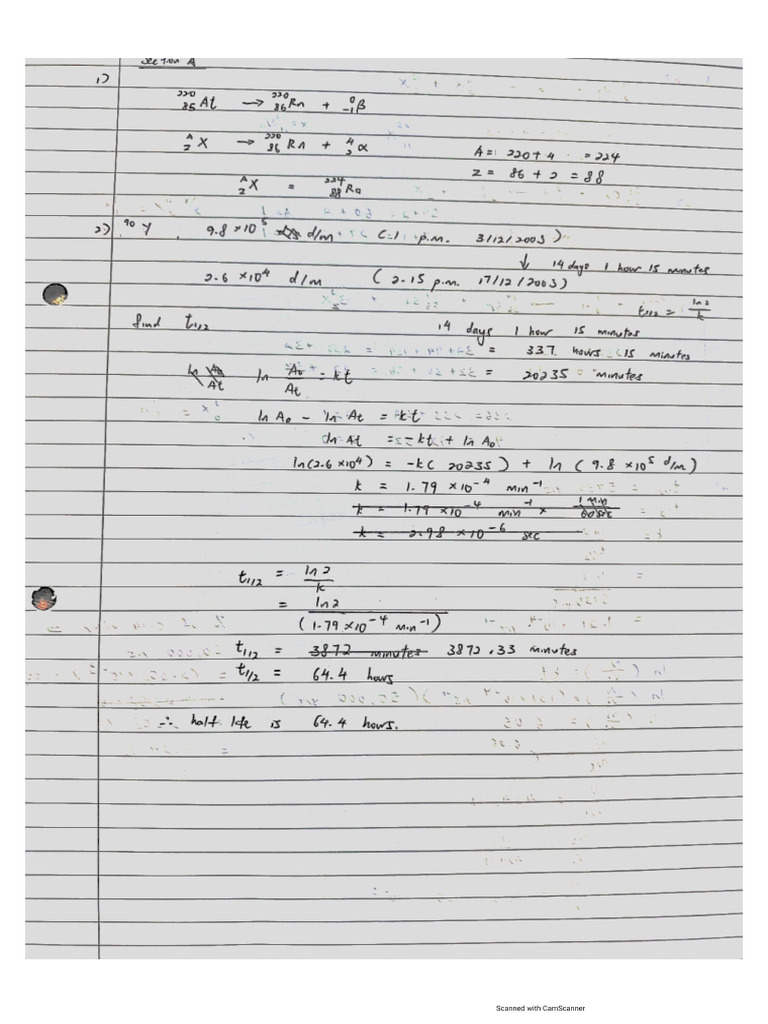 Section A
1)
²²⁰₈₅At → ²²⁰₈₆Rn + ⁰₋₁β
ᴬ_Z X → ²²⁰₈₆Rn + ⁴₂α
A = 220 + 4 = 224
Z = 86 + 2 = 88
ᴬ_Z X = ²²⁴₈₈Ra
2) ⁹⁰Y 9.8 × 10⁵ d/m (1 p.m. 3/12/2003)
↓ 14 days 1 hour 15 minutes
2.6 × 10⁴ d/m (2.15 p.m. 17/12/2003)
t₁/₂ = ln 2 / k
find t₁/₂ 14 days 1 hour 15 minutes
= 337 hours 15 minutes
ln A₀/At = kt = 20235 minutes
ln A₀ - ln At = kt
ln At = -kt + ln A₀
ln(2.6 × 10⁴) = -k( 20235) + ln ( 9.8 × 10⁵ d/m)
k = 1.79 × 10⁻⁴ min⁻¹
k = 1.79 × 10⁻⁴ min⁻¹ × 1 min / 60 sec
k = 2.98 × 10⁻⁶ sec
t₁/₂ = ln 2 / k
= ln 2 / (1.79 × 10⁻⁴ min⁻¹)
t₁/₂ = 3872 minutes 3872.33 minutes
t₁/₂ = 64.4 hours
∴ half life is 64.4 hours.
Scanned with CamScanner